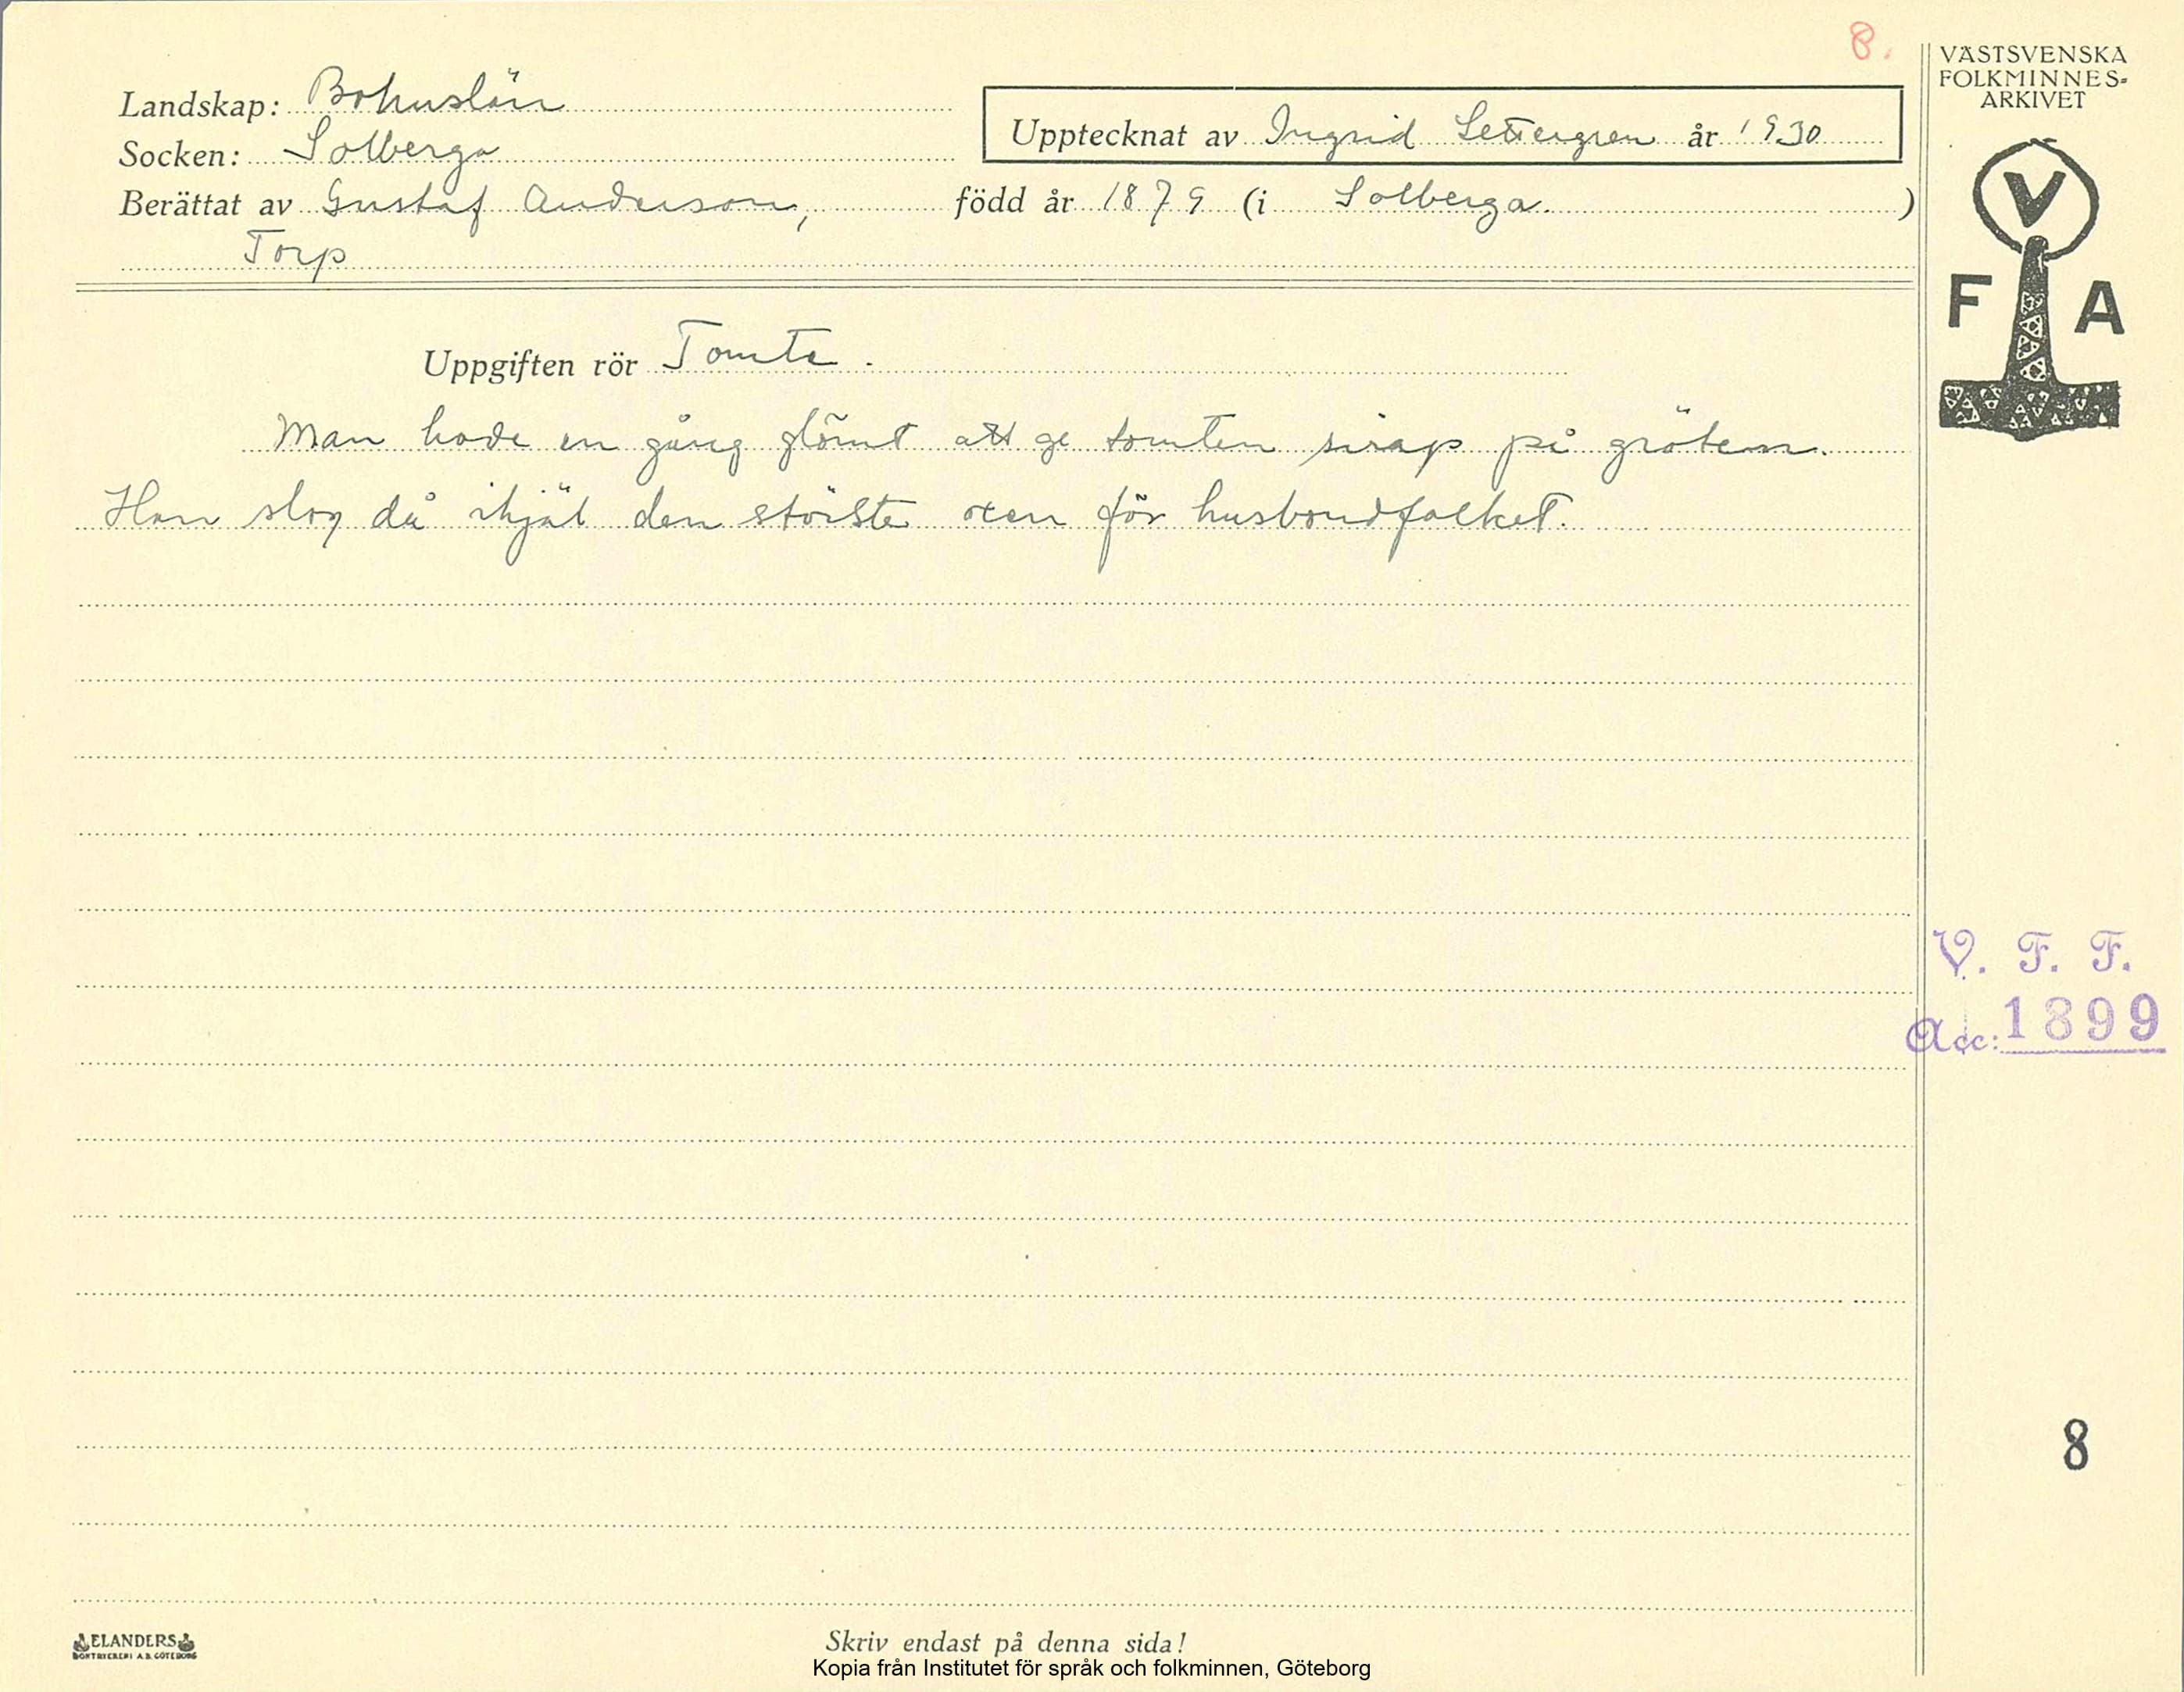 8.
VÄSTSVENSKA
FOLKMINNES-
ARKIVET
Landskap: Bohuslän
Upptecknat av Ingrid Settergren år 1930
Socken: Solberga
Berättat av Gustaf Anderson, född år 1879 (i Solberga. )
Torp
V
F A
Uppgiften rör Tomte.
Man hade en gång glömt att ge tomten sirap på gröten.
Han slog då ihjäl den största oxen för husbondfolket.
V. F. F.
Acc: 1899
8
ELANDERS
BOKTRYCKERI A.B. GÖTEBORG
Skriv endast på denna sida!
Kopia från Institutet för språk och folkminnen, Göteborg